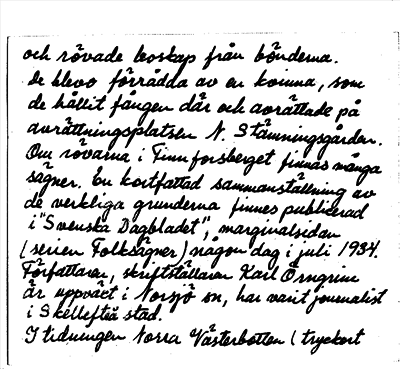 och rövade boskap från bönderna.
De blevo förrådda av en kvinna, som
de hållit fången där och avrättade på
avrättningsplatsen N. Stämningsgården.
Om rövarna i Finnforsberget finnas många
sägner. En kortfattad sammanställning av
de verkliga grunderna finnes publicerad
i "Svenska Dagbladet", marginalsidan
(serien Folksägner) någon dag i juli 1934.
Författaren, skriftställaren Karl Örngrim
är uppväxt i Norsjö sn, har varit journalist
i Skellefteå stad.
I tidningen Norra Västerbotten (tryckort